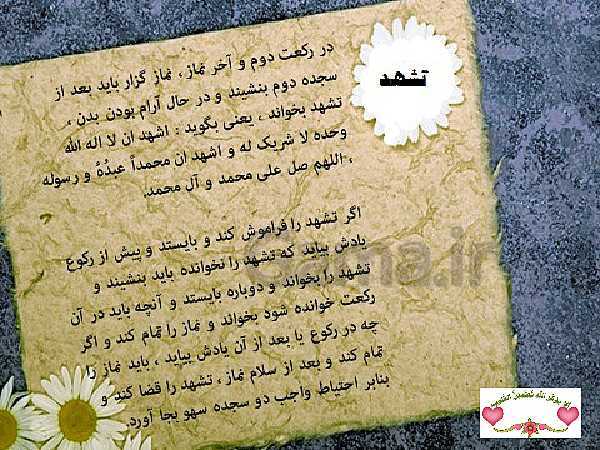 تشهد
در رکعت دوم و آخر نماز ، نماز گزار باید بعد از
سجده دوم بنشیند و در حال آرام بودن بدن ،
تشهد بخواند ، یعنی بگوید : اشهد ان لا اله الله
وحده لا شریک له و اشهد ان محمداً عبدُهُ و رسوله
، اللهم صل علی محمد و آل محمد.
اگر تشهد را فراموش کند و بایستد و پیش از رکوع
یادش بیاید که تشهد را نخوانده باید بنشیند و
تشهد را بخواند و دوباره بایستد و آنچه باید در آن
رکعت خوانده شود بخواند و نماز را تمام کند و اگر
چه در رکوع یا بعد از آن یادش بیاید ، باید نماز را
تمام کند و بعد از سلام نماز ، تشهد را قضا کند و
بنابر احتیاط واجب دو سجده سهو بجا آورد.